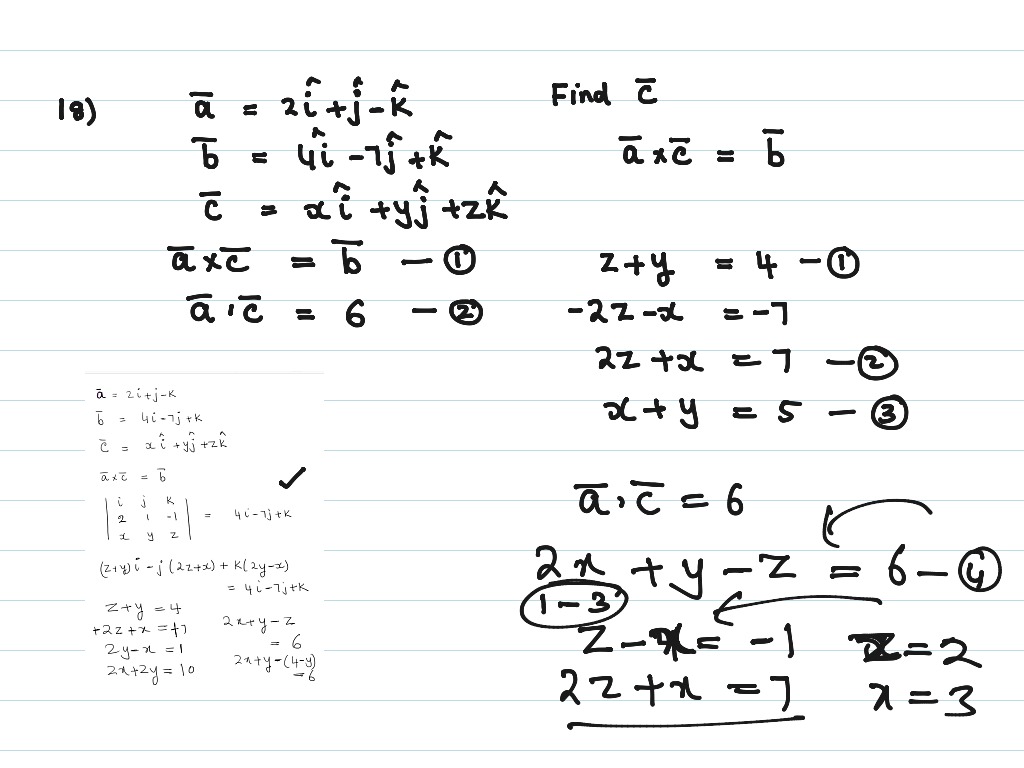 18)
a̅ = 2î + ĵ - k̂
b̅ = 4î - 7ĵ + k̂
c̅ = xî + yĵ + zk̂
a̅ × c̅ = b̅ — ①
a̅ . c̅ = 6 — ②
Find c̅
a̅ × c̅ = b̅
z + y = 4 — ①
-2z - x = -7
2z + x = 7 — ②
x + y = 5 — ③
a̅ . c̅ = 6
2x + y - z = 6 — ④
1 - 3
z - x = -1
z = 2
2z + x = 7
x = 3
a̅ = 2i + j - k
b̅ = 4i - 7j + k
c̅ = xî + yĵ + zk̂
a̅ × c̅ = b̅
| i j k |
| 2 1 -1 | = 4i - 7j + k
| x y z |
(z+y)i - j(2z+x) + k(2y-x)
= 4i - 7j + k
z + y = 4
+2z + x = +7
2y - x = 1
2x + 2y = 10
2x + y - z
= 6
2x + y - (4-y)
= 6